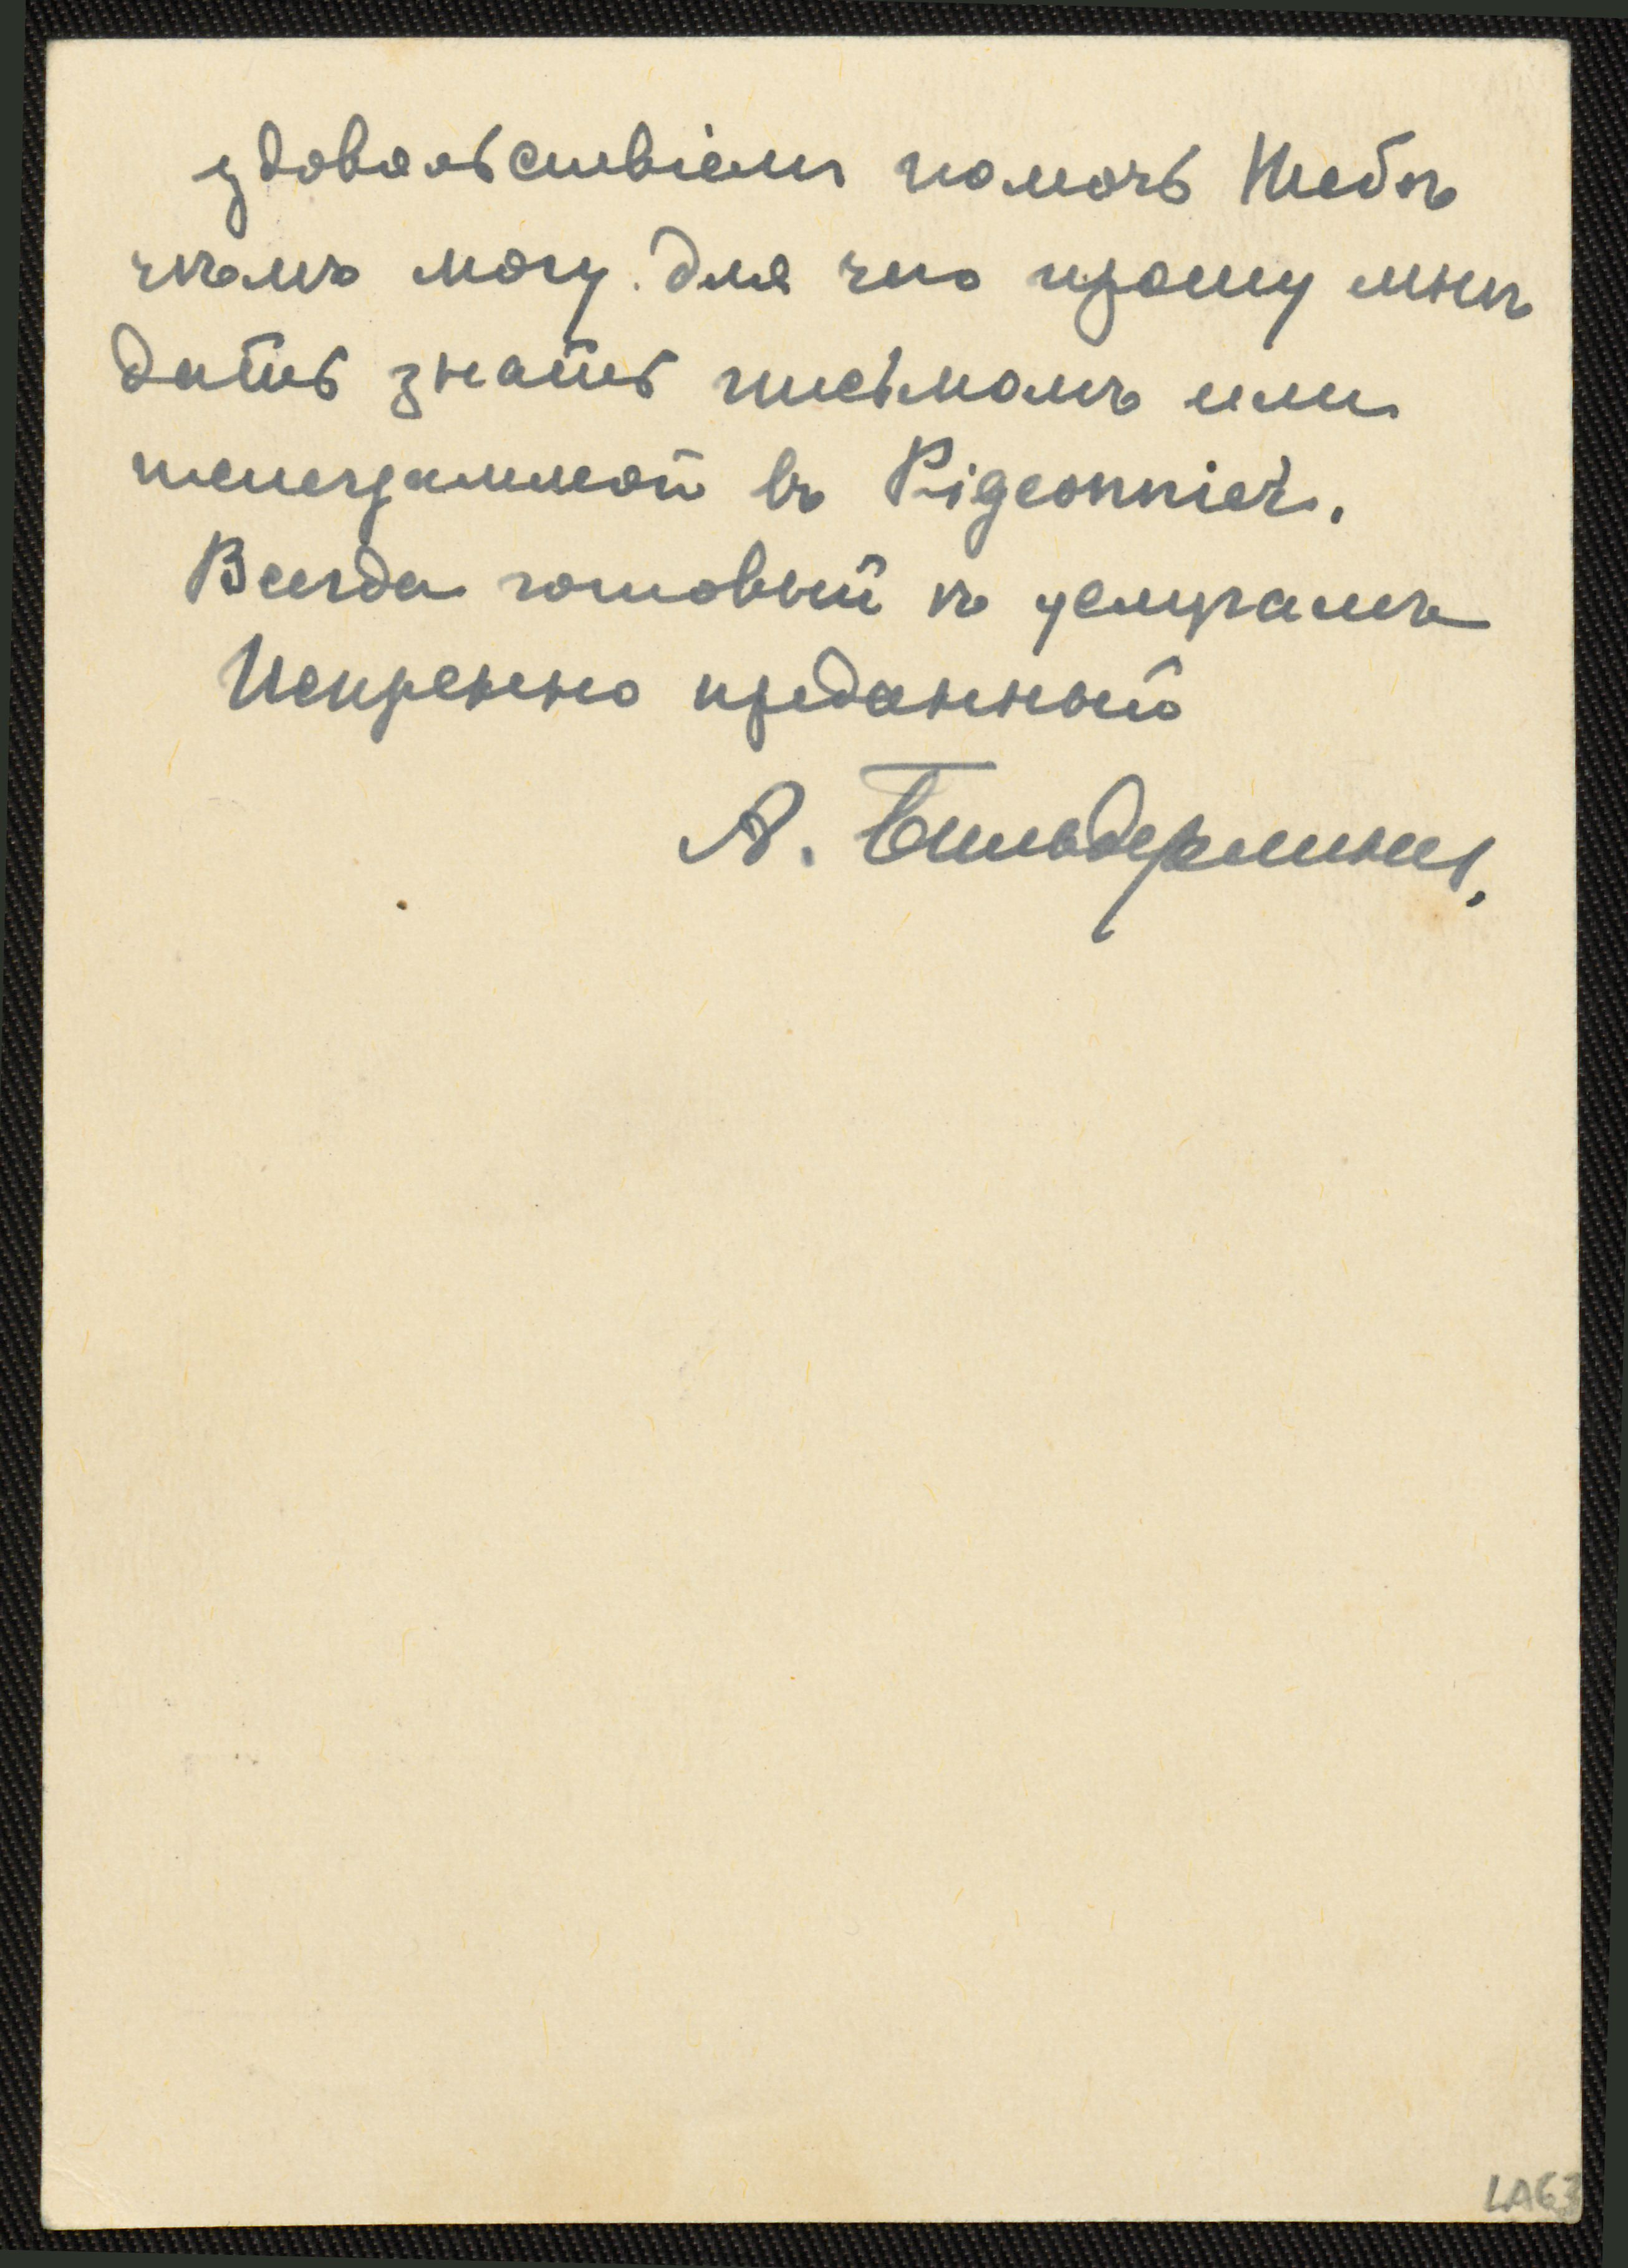 удовольствіемъ помочь Тебѣ
чѣмъ могу. Для чего прошу мнѣ
дать знать письмомъ или
телеграммой въ Pigeonnier.
Всегда готовый къ услугамъ
Искренно преданный
А. Бильдерлингъ.
LA63